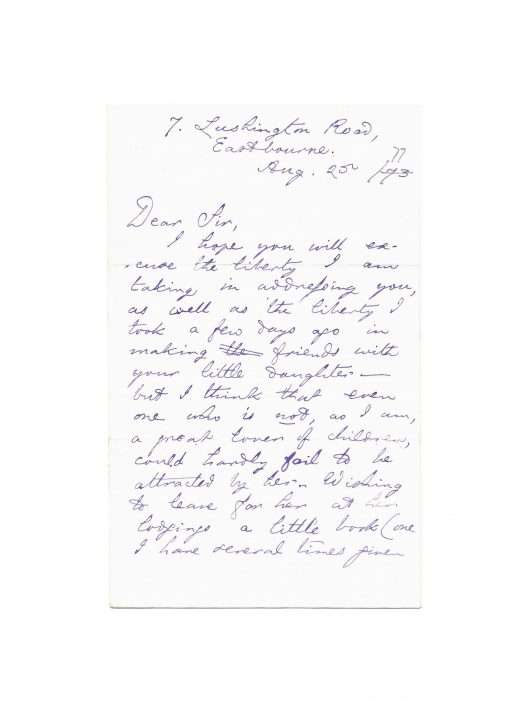 7. Lushington Road,
Eastbourne.
Aug. 25 /77
Dear Sir,
I hope you will ex-
cuse the liberty I am
taking in addressing you,
as well as the liberty I
took a few days ago in
making the friends with
your little daughter —
but I think that even
one who is not, as I am,
a great lover of children,
could hardly fail to be
attracted by her. Wishing
to leave for her at her
lodgings a little book (one
I have several times given